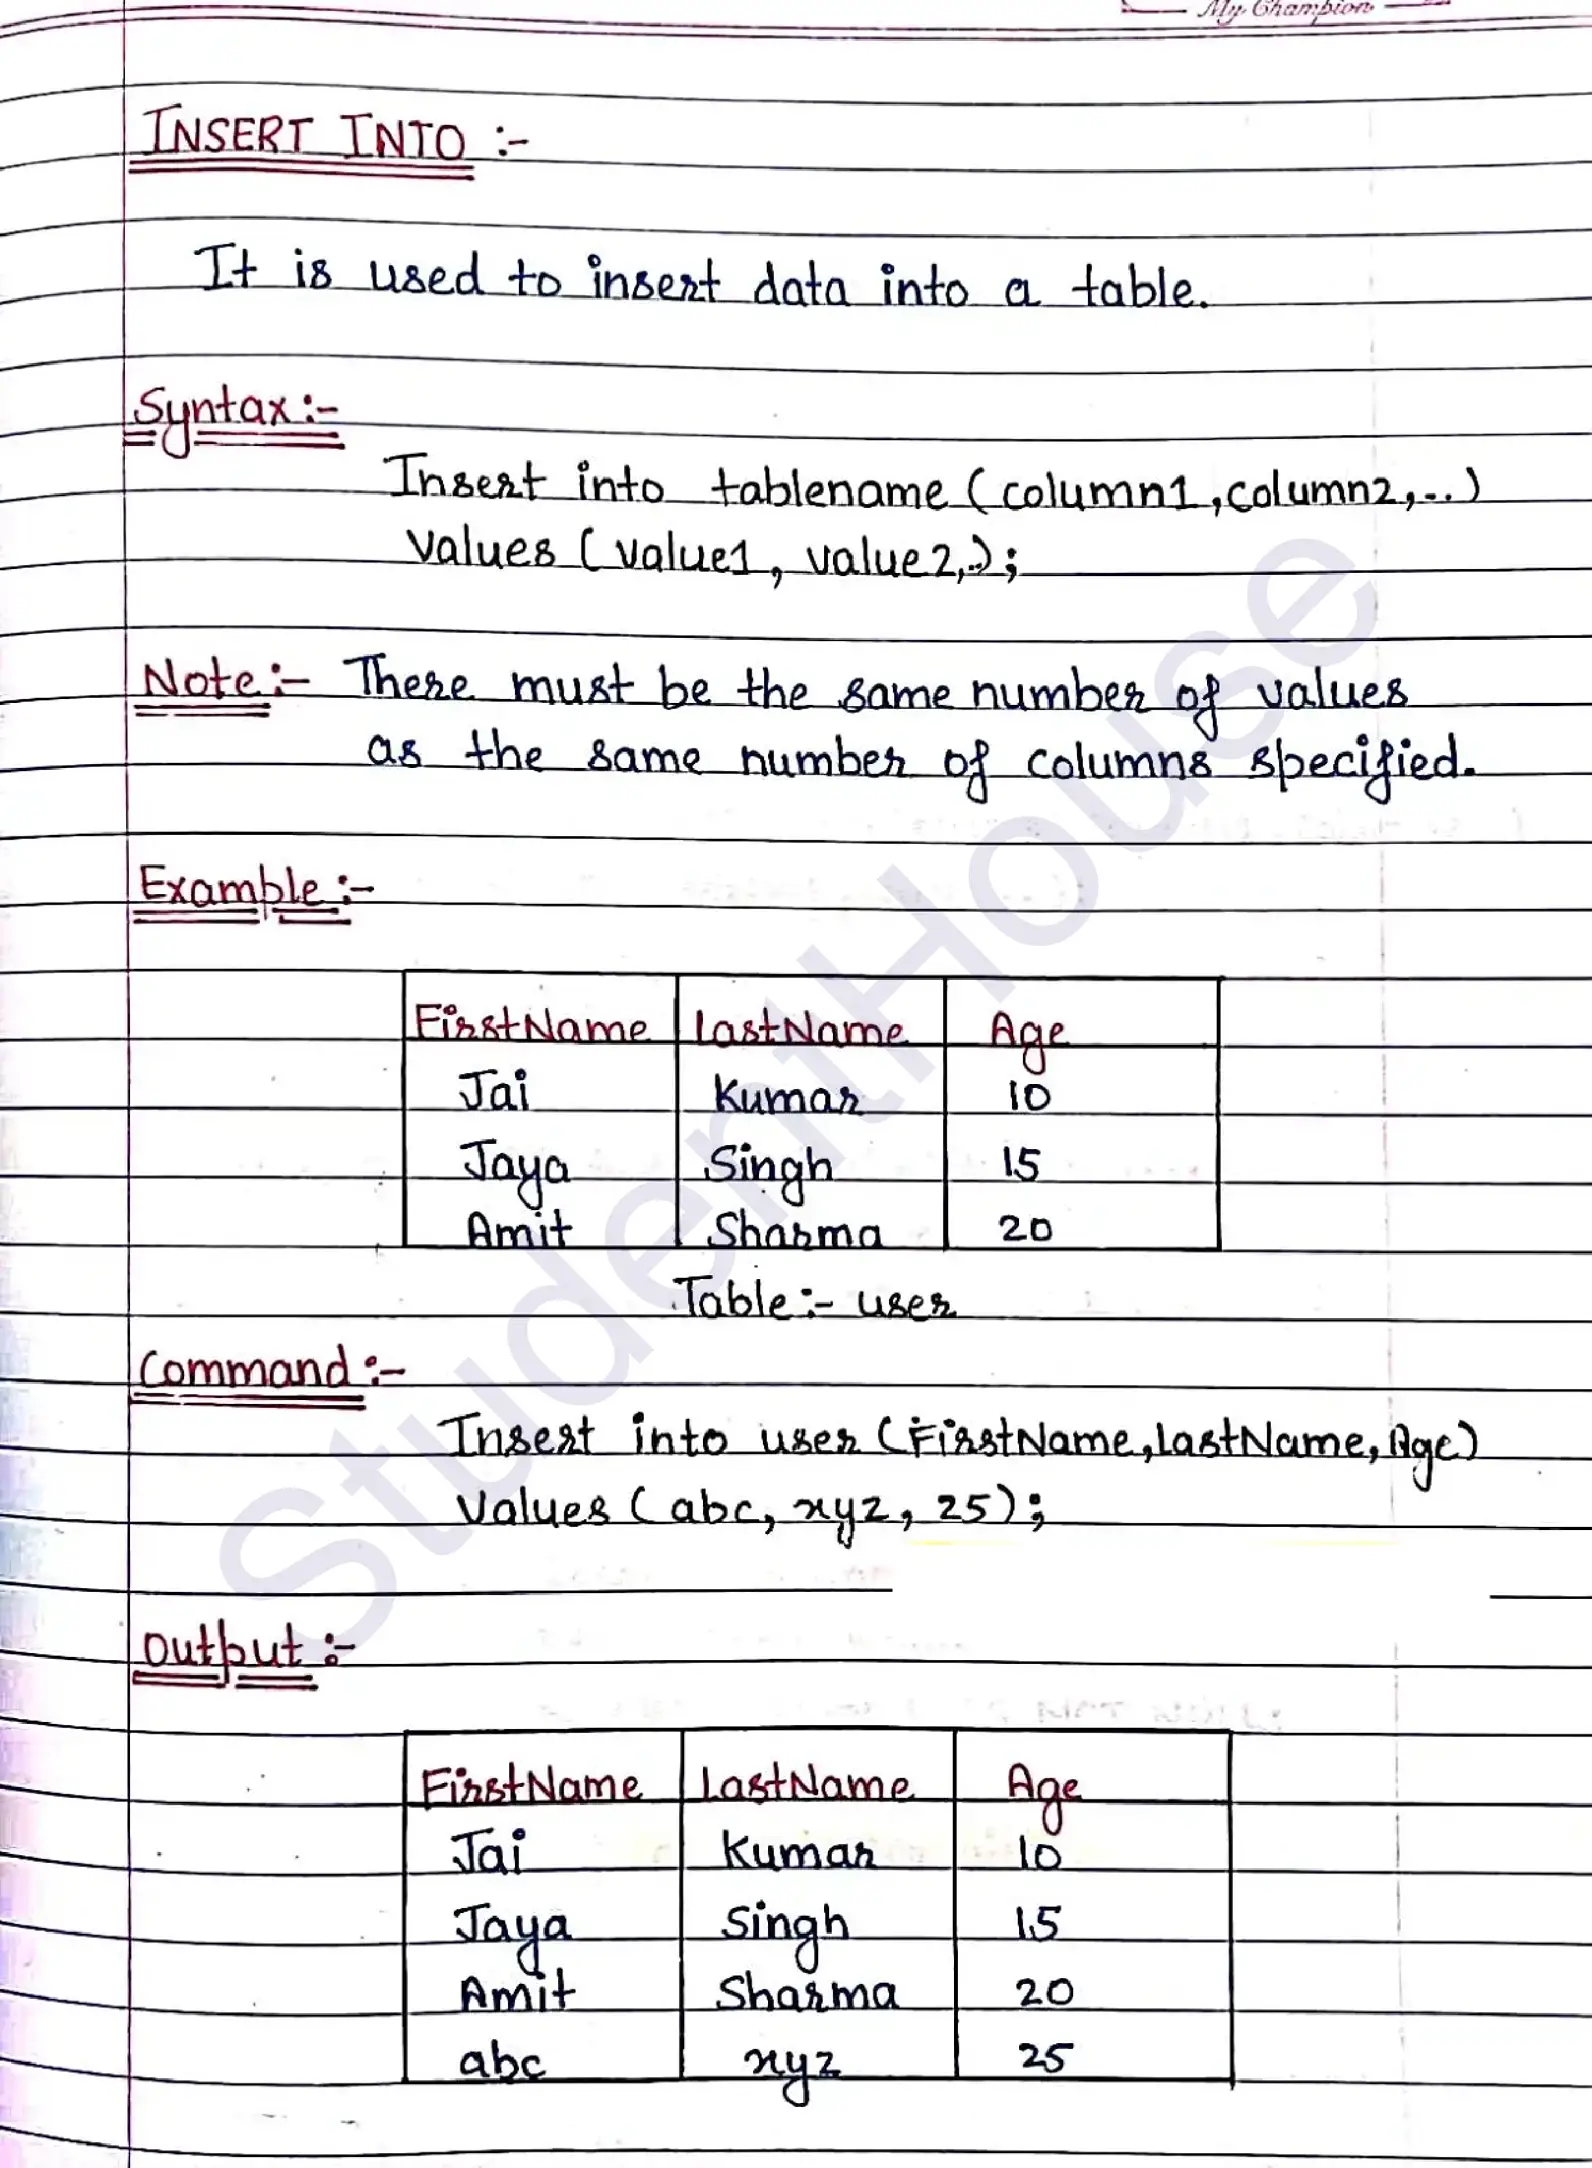 My Champion
INSERT INTO :-
It is used to insert data into a table.
Syntax:-
Insert into tablename (column1,column2,...)
values (value1, value2,..);
Note:- There must be the same number of values
as the same number of columns specified.
Example:-
FirstName LastName Age
Jai Kumar 10
Jaya Singh 15
Amit Sharma 20
Table:- user
Command:-
Insert into user (FirstName,LastName,Age)
Values (abc, xyz, 25);
Output:-
FirstName LastName Age
Jai Kumar 10
Jaya Singh 15
Amit Sharma 20
abc xyz 25
StudentHouse